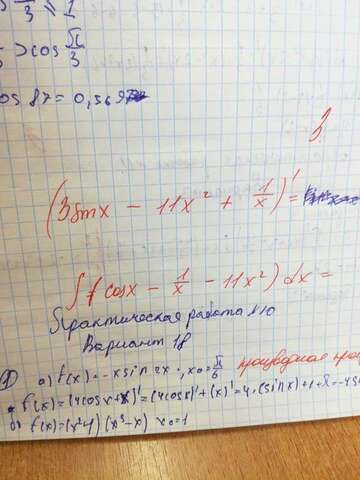 π/3 ≤ 1
> cos π/3
cos 87 = 0,569
3
(3sinx - 11x² + 1/x)' =
∫(cosx - 1/x - 11x²) dx =
Практическая работа №10
Вариант 18
1) а) f(x) = -xsin2x, x₀ = π/6
f'(x) = (4cosx + x)' = (4cosx)' + (x)' = 4·(sinx) + 1
б) f(x) = (x²-4)(x³-x) x₀ = 1